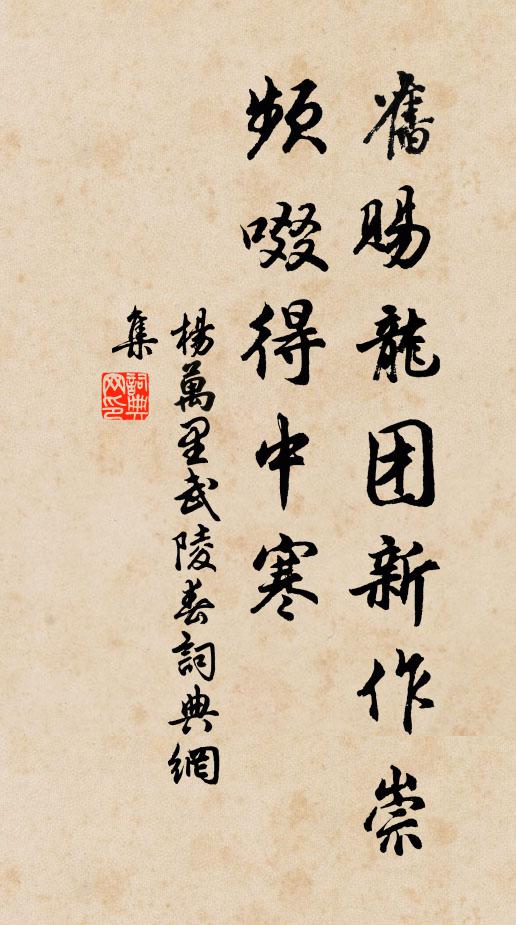 舊賜龍团新作祟
頻啜得中寒
楊萬里武陵春詞典網
集
詞典网印